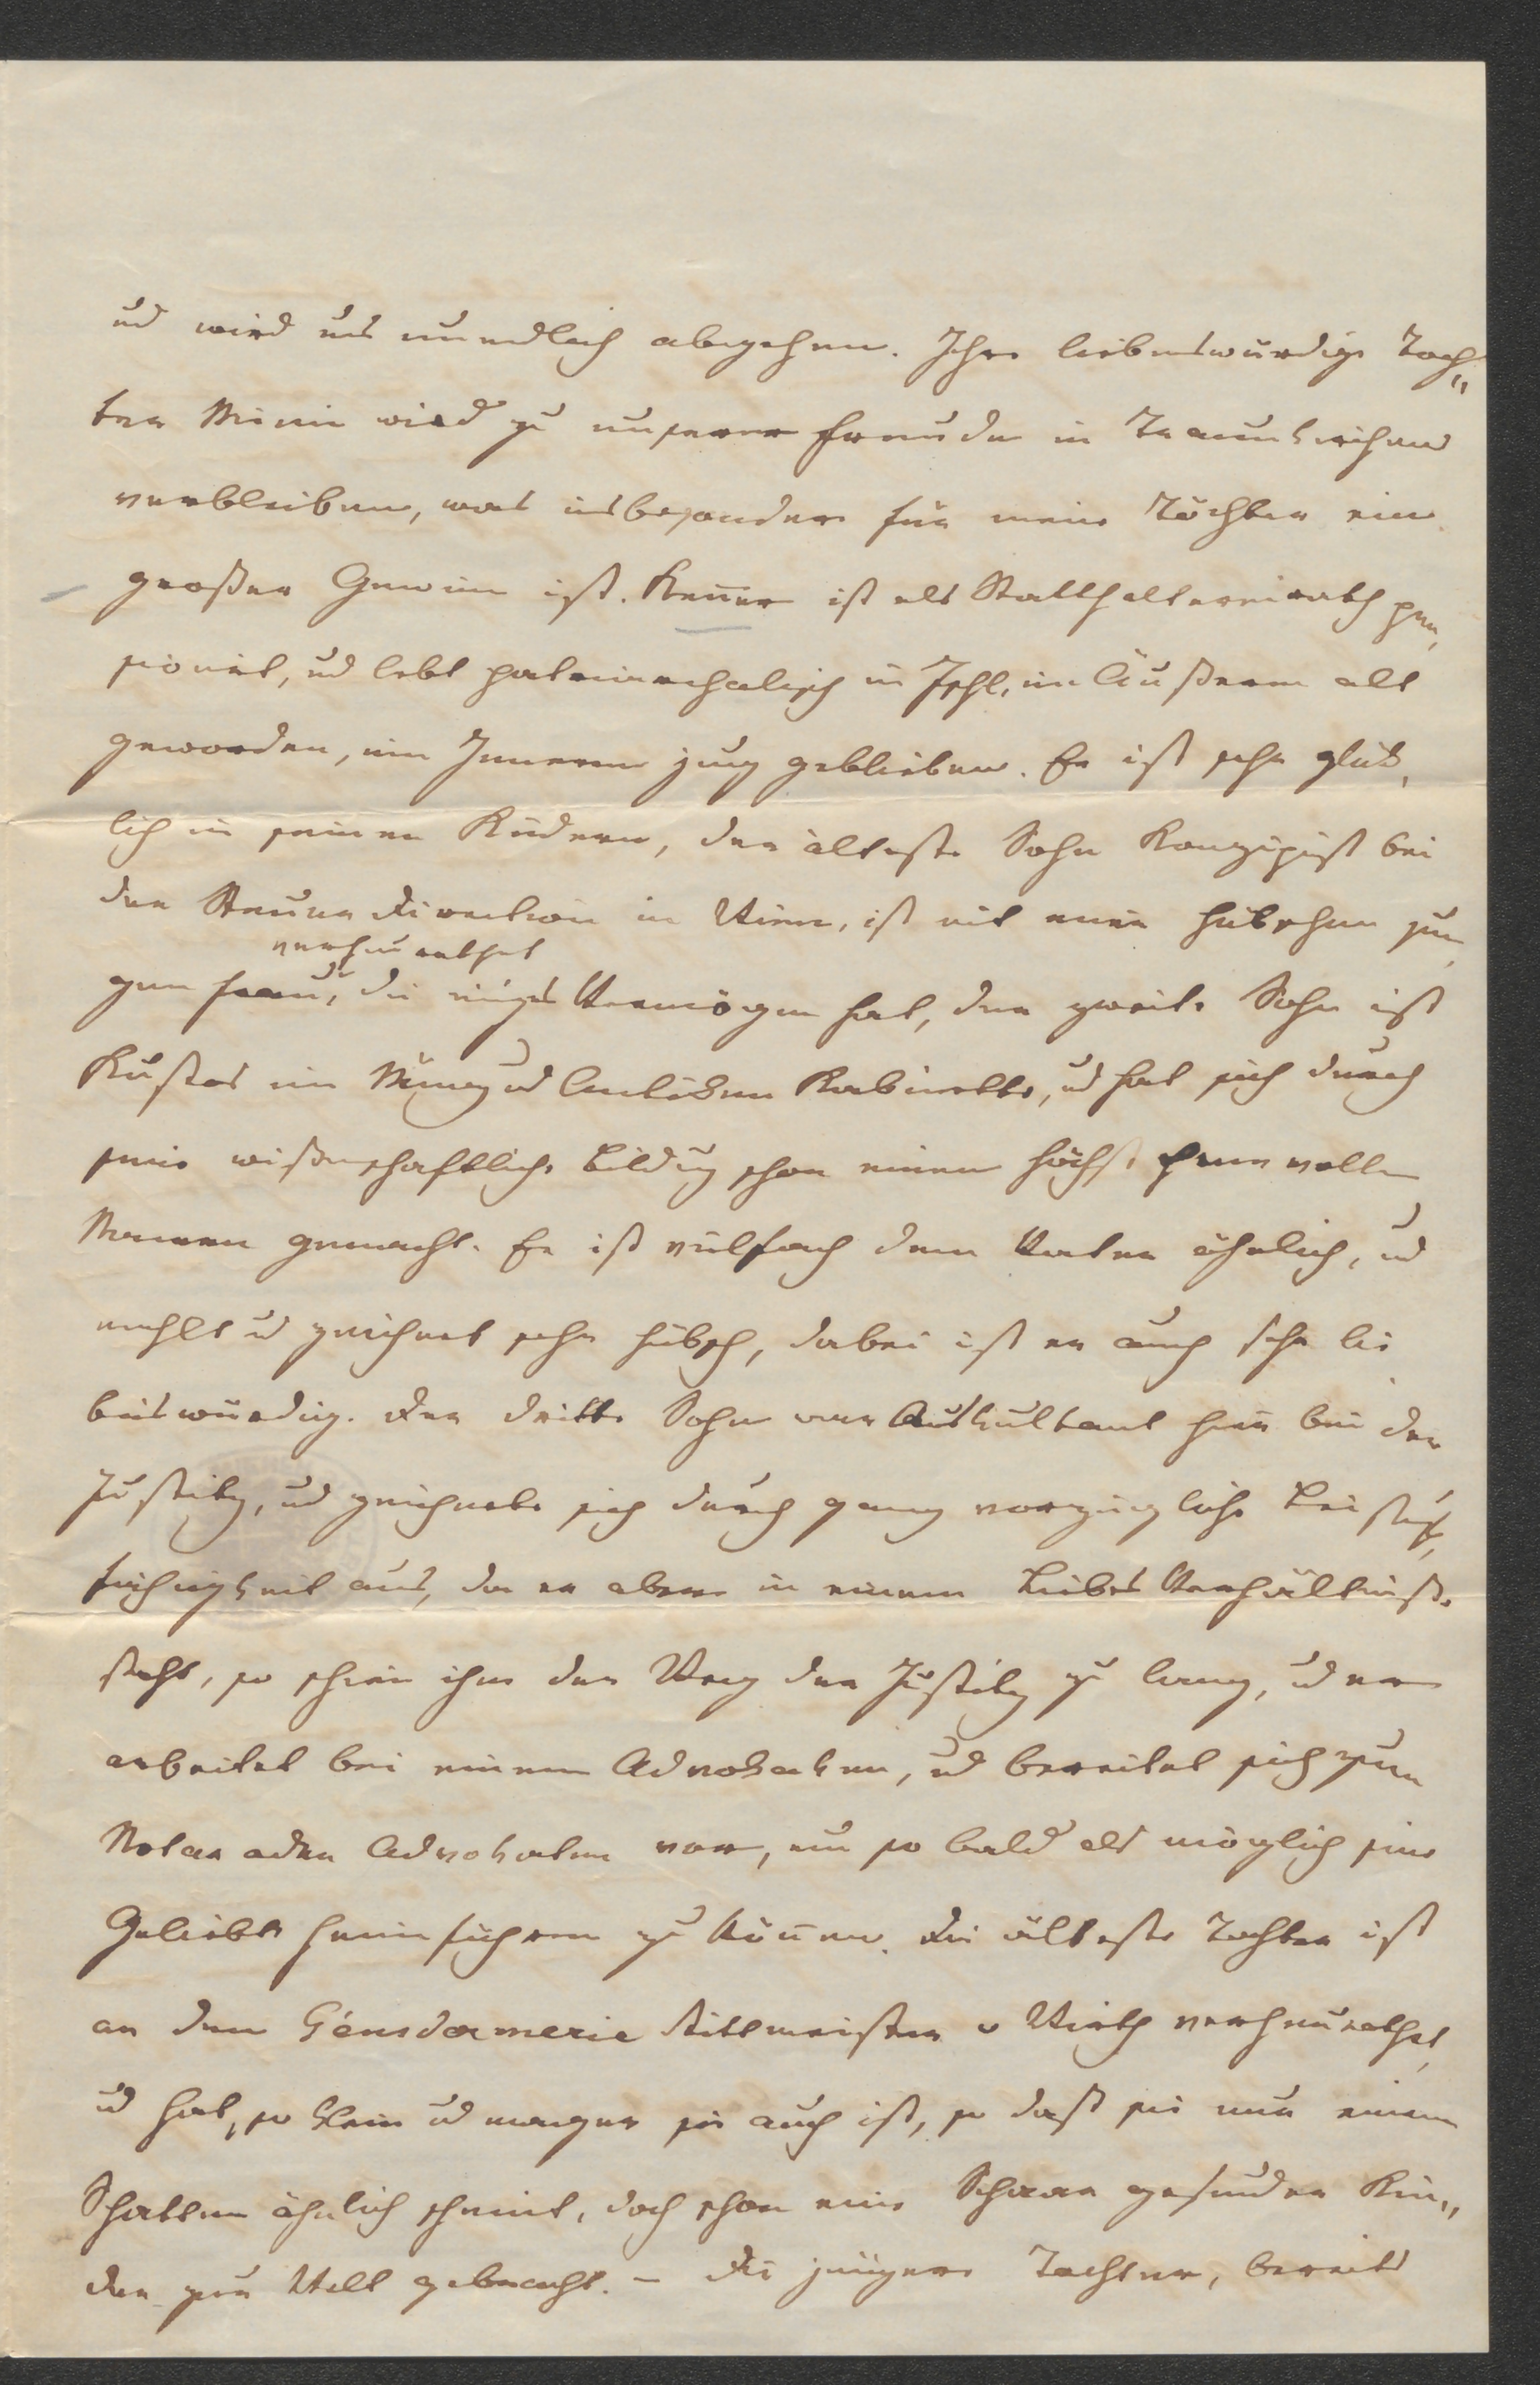 ud wird uns unendlich abgehen. Ihre liebenswürdige Toch„
ter Minni wird zu unserer Freude in Traunkirchen
verbleiben, was insbesondere für meine Töchter ein
großer Gewinn ist. Kenner ist als Statthaltereirath pen,
sionirt, ud lebt patriarchalisch in Ischl, im Äußeren alt
geworden, im Inneren jung geblieben. Er ist sehr glük,
lich in seinen Kindern, der älteste Sohn Konzipist bei
der Steuer Direction in Wien, ist mit einer hübschen jun
verheurathet
gen Frau, die einiges Vermögen hat, der zweite Sohn ist
Kustos im Münz ud Antiken Kabinette, ud hat sich durch
seine wißenschaftliche Bildung schon einen höchst ehrenvollen
Namen gemacht. Er ist vielfach dem Vater ähnlich, ud
mahlt ud zeichnet sehr hübsch, dabei ist er auch sehr lie
benswürdig. Der dritte Sohn war Auskultant hier bei der
Justitz, ud zeichnete sich durch ganz vorzügliche Leistungs,
fähigkeit aus, da er aber in einem Liebes Verhältniße
steht, so schien ihm der Weg der Justitz zu lang, ud er
arbeitet bei einem Advokaten, ud bereitet sich zum
Notar oder Advokaten vor, um so bald als möglich seine
Geliebte heimführen zu können. Die älteste Tochter ist
an den Génsdarmerie Rittmeister v Wirth verheurathet,
ud hat, so klein ud mager sie auch ist, so daß sie nur einem
Schatten ähnlich scheint, doch schon eine Schaar gesunder Kin„
der zur Welt gebracht. – Die jüngere Tochter, bereits